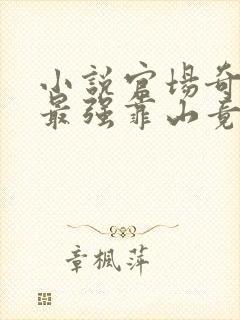 小说官场奇
最强靠山竟
章枫萍